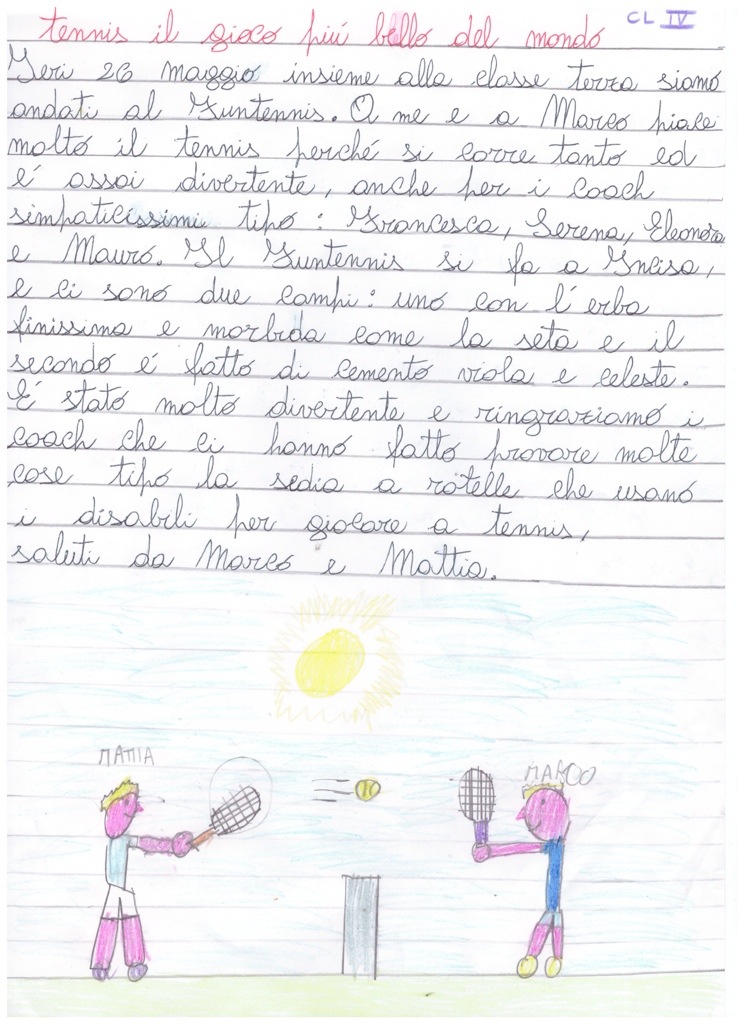 CL IV
tennis il gioco piú bello del mondo
Ieri 26 maggio insieme alla classe terza siamo
andati al Funtennis. A me e a Marco piace
molto il tennis perché si corre tanto ed
é assai divertente, anche per i coach
simpaticissimi tipo: Francesca, Serena, Eleonora
e Mauro. Il Funtennis si fa a Incisa,
e ci sono due campi: uno con l'erba
finissima e morbida come la seta e il
secondo é fatto di cemento viola e celeste.
É stato molto divertente e ringraziamo i
coach che ci hanno fatto provare molte
cose tipo la sedia a rotelle che usano
i disabili per giocare a tennis,
saluti da Marco e Mattia.
MATTIA
MARCO